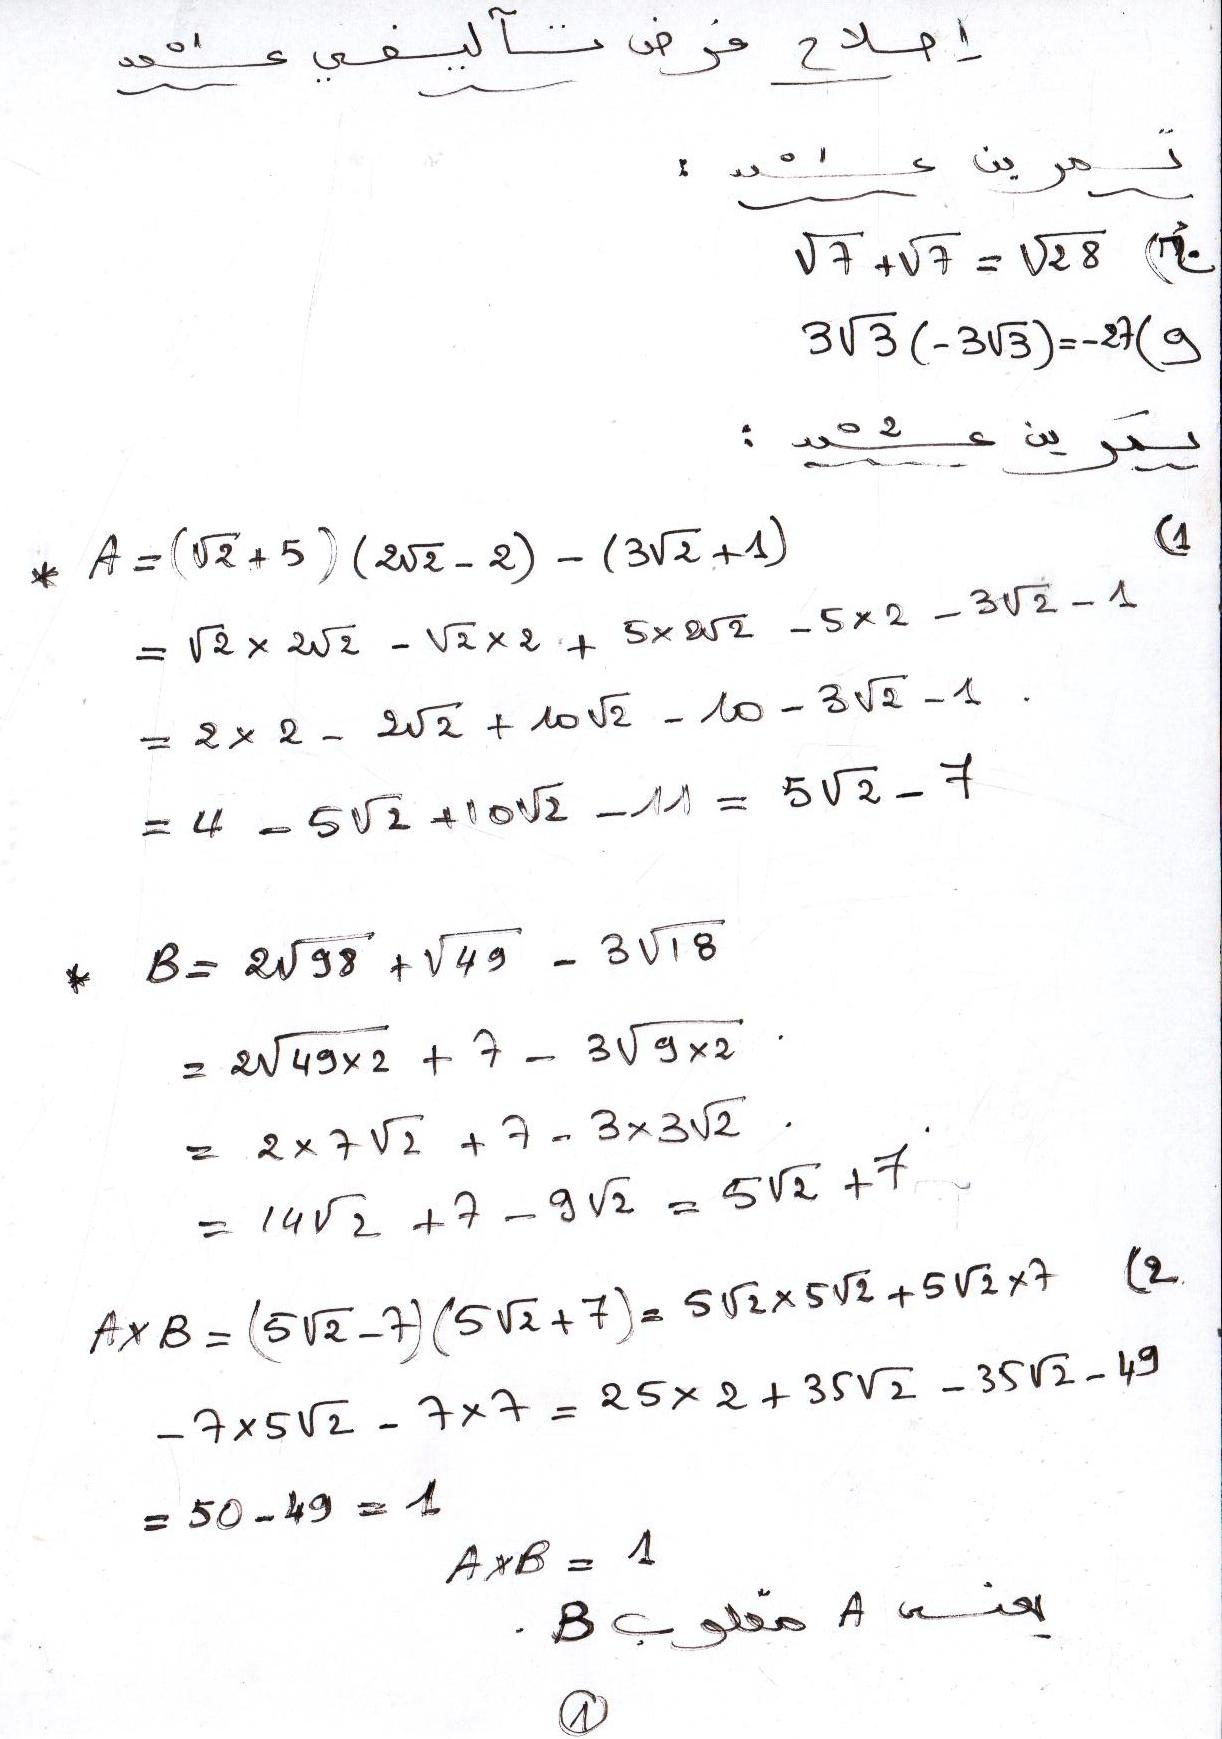 إصلاح فرض تأليفي عـ1ـدد
تمرين عـ1ـدد :
ج) √7 + √7 = √28
و) 3√3 (-3√3) = -27
تمرين عـ2ـدد :
1)
* A = (√2 + 5)(2√2 - 2) - (3√2 + 1)
= √2 × 2√2 - √2 × 2 + 5 × 2√2 - 5 × 2 - 3√2 - 1
= 2 × 2 - 2√2 + 10√2 - 10 - 3√2 - 1
= 4 - 5√2 + 10√2 - 11 = 5√2 - 7
* B = 2√98 + √49 - 3√18
= 2√(49×2) + 7 - 3√(9×2)
= 2 × 7√2 + 7 - 3 × 3√2
= 14√2 + 7 - 9√2 = 5√2 + 7
2) A × B = (5√2 - 7)(5√2 + 7) = 5√2 × 5√2 + 5√2 × 7
- 7 × 5√2 - 7 × 7 = 25 × 2 + 35√2 - 35√2 - 49
= 50 - 49 = 1
A × B = 1
يعني A مقلوب B .
1